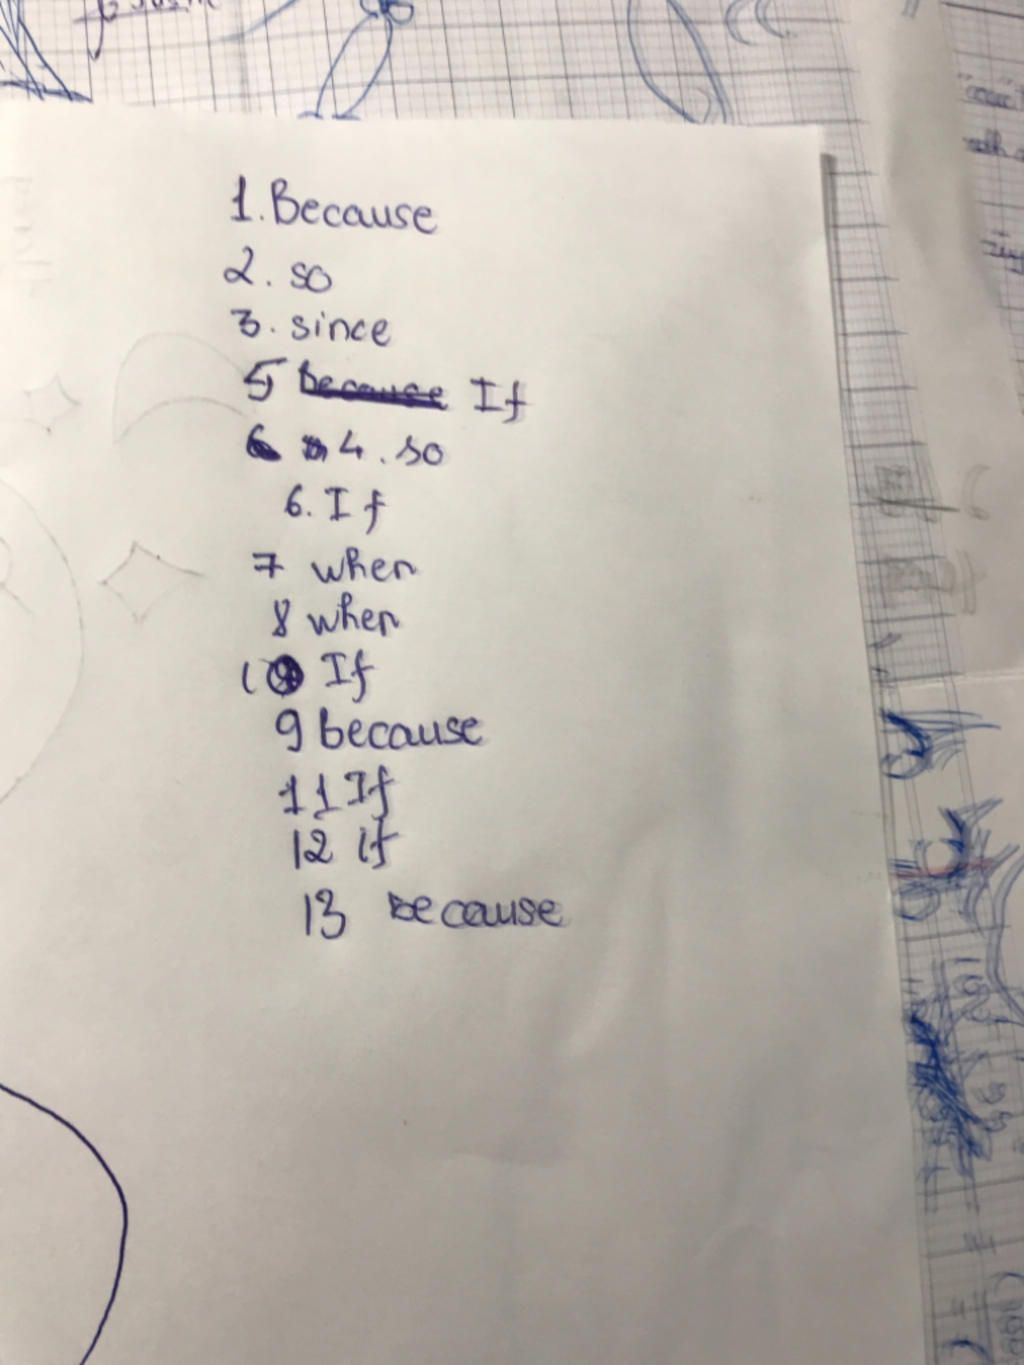 1. Because
2. so
3. since
5 because If
6 4. so
6. If
7 when
8 when
10 If
9 because
11 If
12 if
13 because